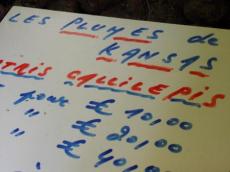 LES PLUMES de
KANSAS
TRIS CALLILEPIS
pour € 10,00
" € 20,00
" € 40,00